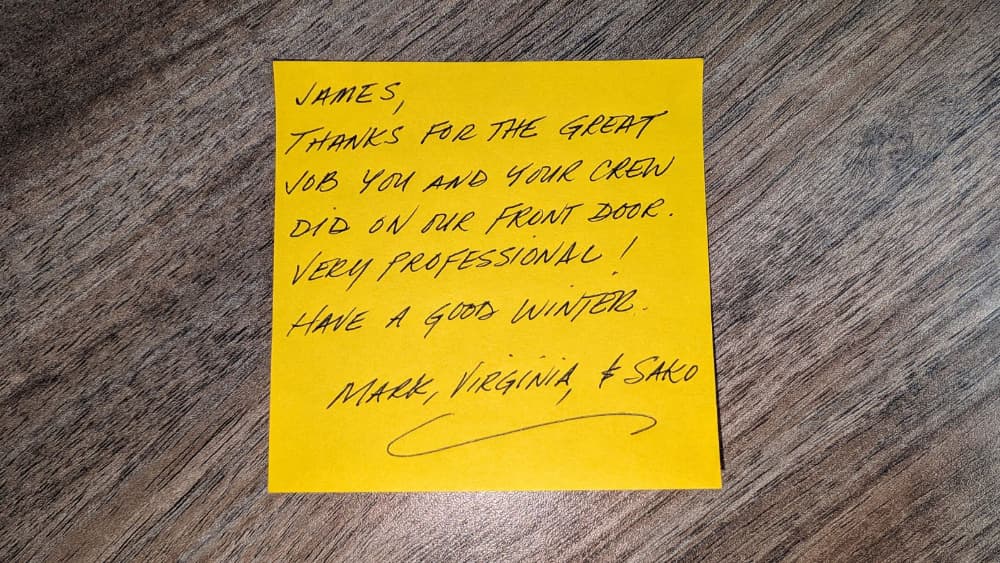 JAMES,
THANKS FOR THE GREAT
JOB YOU AND YOUR CREW
DID ON OUR FRONT DOOR.
VERY PROFESSIONAL!
HAVE A GOOD WINTER.
MARK, VIRGINIA, & SAKO